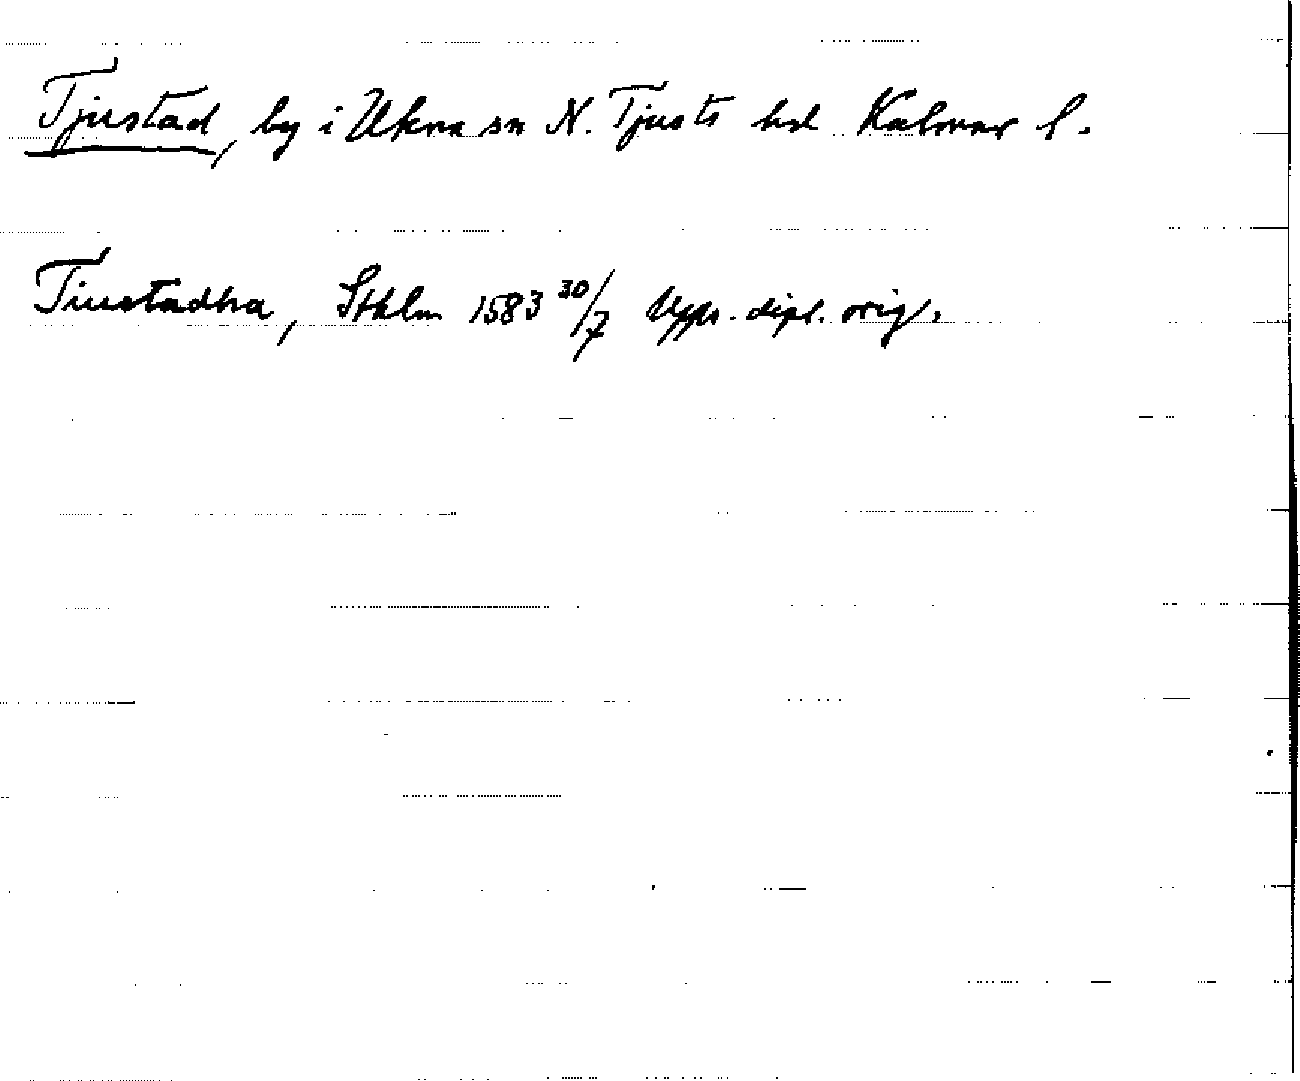 Tjustad, by i Ukna sn N. Tjusts hd Kalmar l.
Tiustadha, Sthlm 1583 30/7 Upps. dipl. orig.